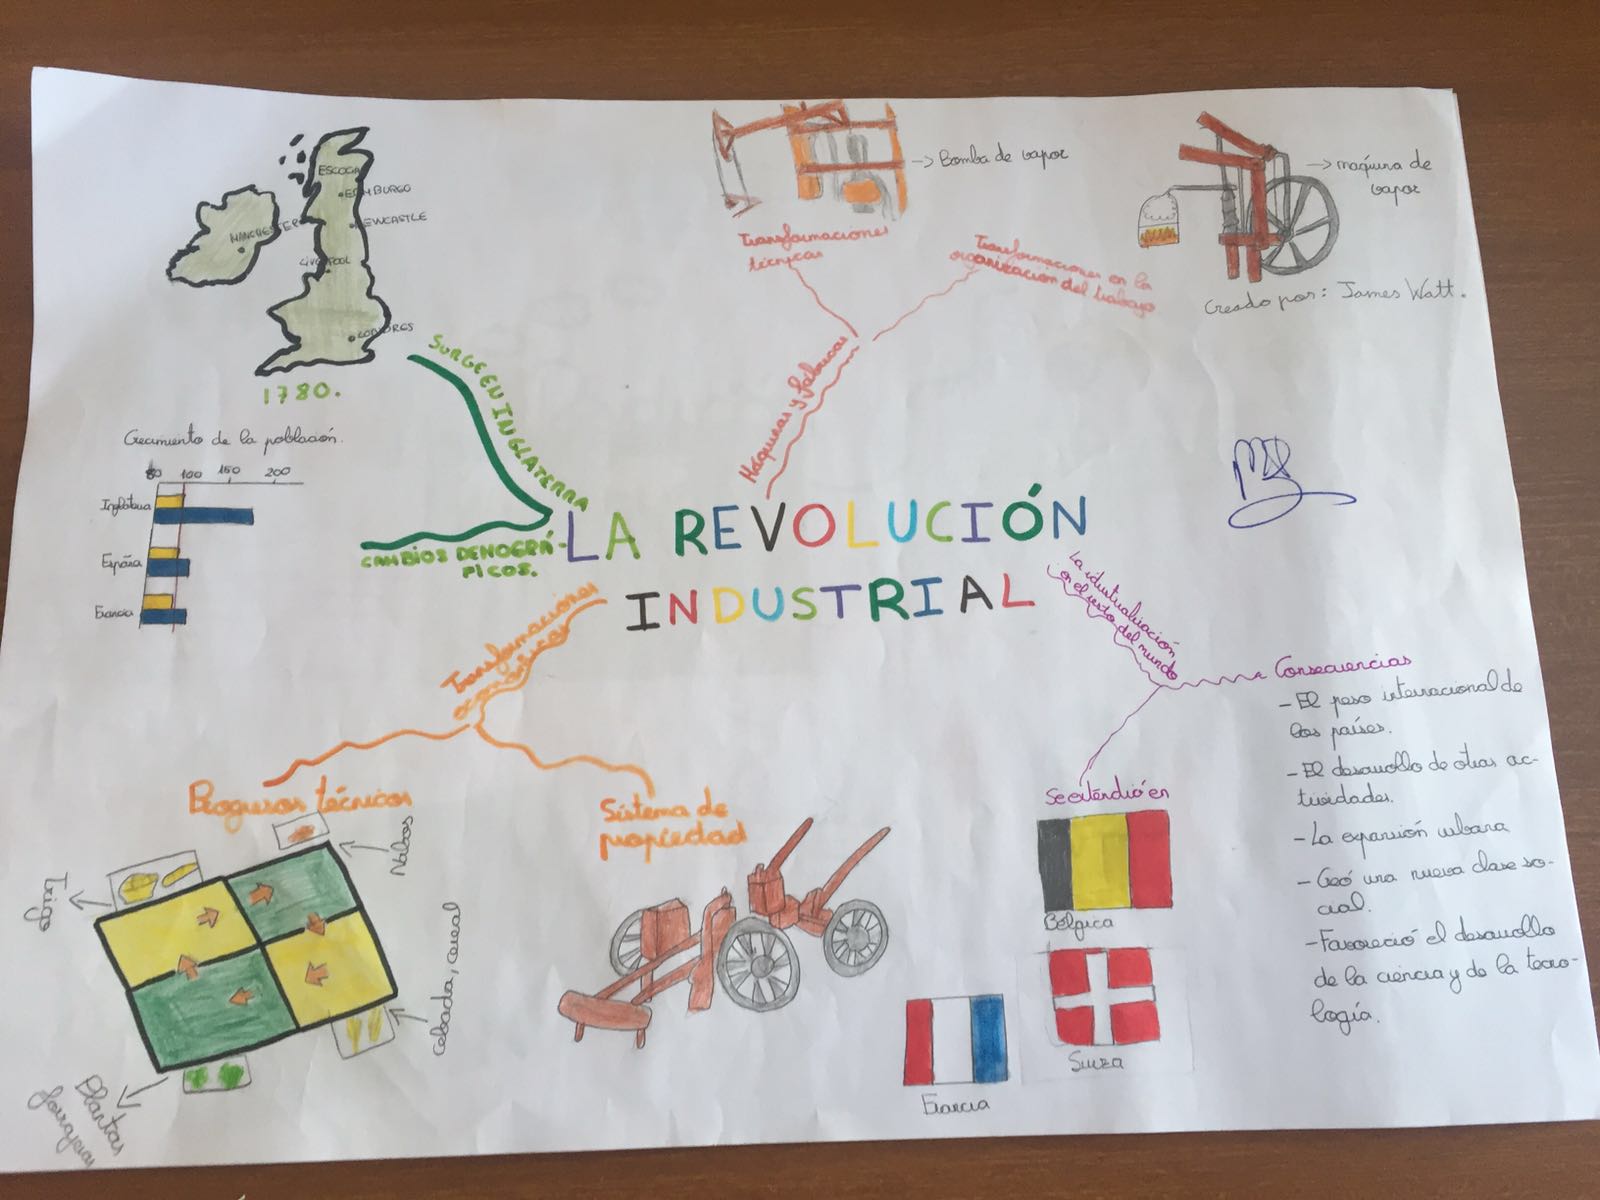 LA REVOLUCIÓN
INDUSTRIAL
SURGE EN INGLATERRA
ESCOCIA
EDIMBURGO
NEWCASTLE
MANCHESTER
LIVERPOOL
LONDRES
1780.
CAMBIOS DEMOGRÁ-
FICOS.
Crecimiento de la población.
50 100 150 200
Inglaterra
España
Francia
Máquinas y fábricas
Transformaciones
técnicas
-> Bomba de vapor
Transformaciones en la
organización del trabajo
-> maquina de
vapor
Creado por: James Watt.
Transformaciones
económicas
Progresos técnicos
Nabos
Trigo
Cebada, cereal
Plantas
forrajeras
Sistema de
propiedad
La idustrialización
en el resto del mundo
Se exténdió en
Bélgica
Suiza
Francia
Consecuencias
- El peso internacional de
los países.
- El desarrollo de otras ac-
tividades.
- La expansión urbana
- Creó una nueva clase so-
cial.
- Favoreció el desarrollo
de la ciencia y de la tecno-
logía.